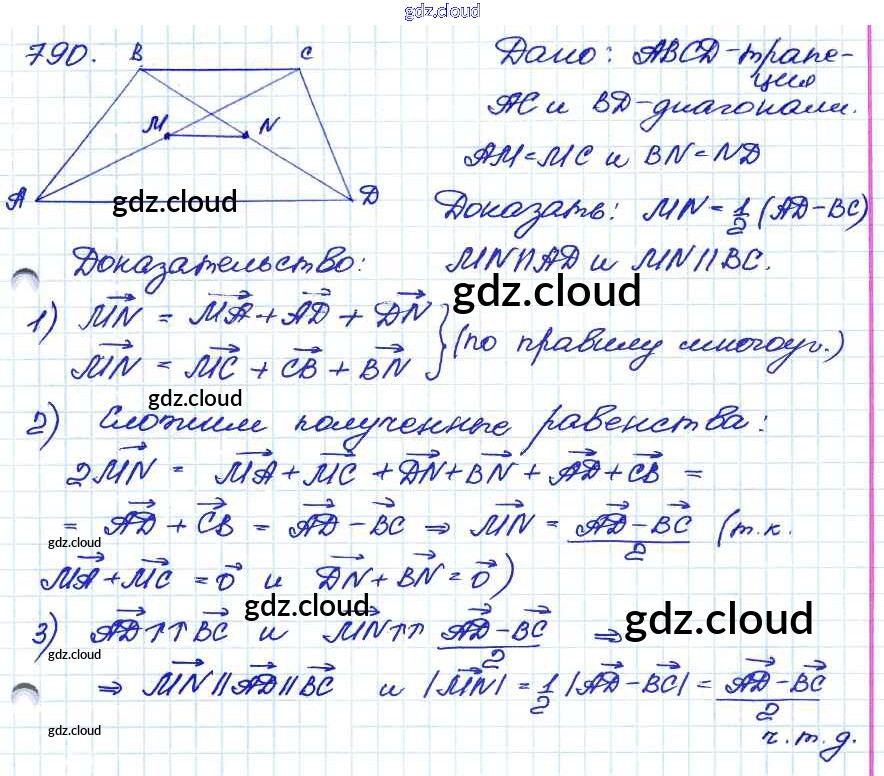 gdz.cloud
790.
B C
M N
A D
gdz.cloud
Дано: ABCD-трапе-
ция
AC и BD-диагонали.
AM=MC и BN=ND
Доказать: MN=1/2(AD-BC)
MN||AD и MN||BC.
gdz.cloud
Доказательство:
1) MN⃗ = MA⃗ + AD⃗ + DN⃗
MN⃗ = MC⃗ + CB⃗ + BN⃗ } (по правилу многоуг.)
gdz.cloud
2) Сложим полученные равенства:
2MN⃗ = MA⃗ + MC⃗ + DN⃗ + BN⃗ + AD⃗ + CB⃗ =
= AD⃗ + CB⃗ = AD⃗ - BC⃗ ⇒ MN⃗ = (AD⃗ - BC⃗)/2 (т.к.
gdz.cloud
MA⃗ + MC⃗ = 0⃗ и DN⃗ + BN⃗ = 0⃗)
gdz.cloud
gdz.cloud
3) AD⃗ ↑↑ BC⃗ и MN⃗ ↑↑ (AD⃗ - BC⃗)/2 ⇒
gdz.cloud
⇒ MN⃗ || AD⃗ || BC⃗ и |MN⃗| = 1/2 |AD⃗ - BC⃗| = (AD⃗ - BC⃗)/2
gdz.cloud
ч.т.д.